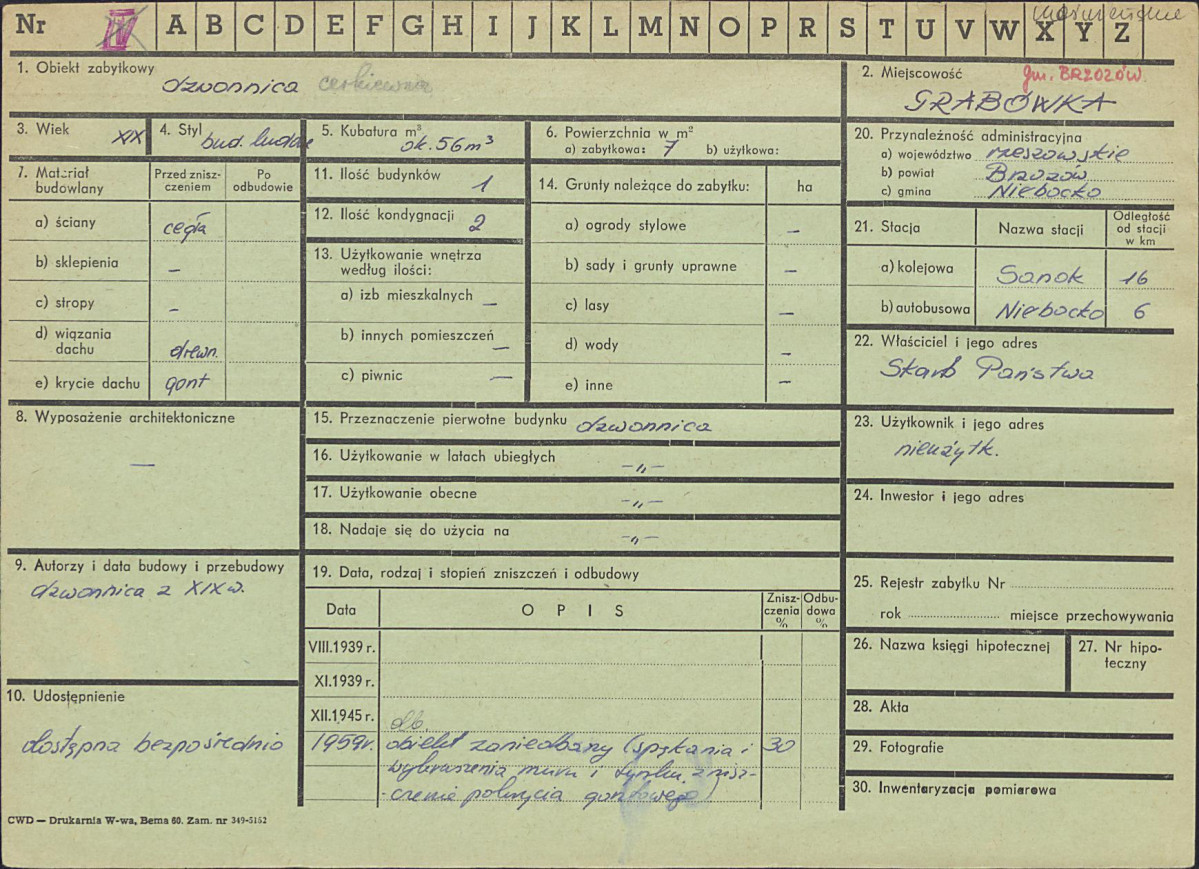 Nr IV A B C D E F G H I J K L M N O P R S T U V W X Y Z
1. Obiekt zabytkowy
dzwonnica cerkiewna
2. Miejscowość gm. BRZOZÓW.
GRABÓWKA
3. Wiek XIX
4. Styl bud. ludowe
5. Kubatura m³
ok. 56 m³
6. Powierzchnia w m²
a) zabytkowa: 7 b) użytkowa:
7. Materiał budowlany
Przed zniszczeniem
Po odbudowie
a) ściany cegła
b) sklepienia —
c) stropy —
d) wiązania dachu drewn.
e) krycie dachu gont
8. Wyposażenie architektoniczne
—
9. Autorzy i data budowy i przebudowy
dzwonnica z XIX w.
10. Udostępnienie
dostępna bezpośrednio
11. Ilość budynków 1
12. Ilość kondygnacji 2
13. Użytkowanie wnętrza
według ilości:
a) izb mieszkalnych —
b) innych pomieszczeń —
c) piwnic —
14. Grunty należące do zabytku: ha
a) ogrody stylowe —
b) sady i grunty uprawne —
c) lasy —
d) wody —
e) inne —
15. Przeznaczenie pierwotne budynku dzwonnica
16. Użytkowanie w latach ubiegłych —„—
17. Użytkowanie obecne —„—
18. Nadaje się do użycia na —„—
19. Data, rodzaj i stopień zniszczeń i odbudowy
Data OPIS Zniszczenia % Odbudowa %
VIII.1939 r.
XI.1939 r.
XII.1945 r. db.
1959r. obiekt zaniedbany (spękania i 30
wybrzuszenia muru i tynku, znisz-
czenie pokrycia gontowego)
20. Przynależność administracyjna
a) województwo rzeszowskie
b) powiat Brzozów
c) gmina Niebocko
21. Stacja Nazwa stacji Odległość od stacji w km
a) kolejowa Sanok 16
b) autobusowa Niebocko 6
22. Właściciel i jego adres
Skarb Państwa
23. Użytkownik i jego adres
nieużytk.
24. Inwestor i jego adres
25. Rejestr zabytku Nr
rok miejsce przechowywania
26. Nazwa księgi hipotecznej
27. Nr hipoteczny
28. Akta
29. Fotografie
30. Inwentaryzacja pomiarowa
CWD — Drukarnia W-wa, Bema 60. Zam. nr 349-5162